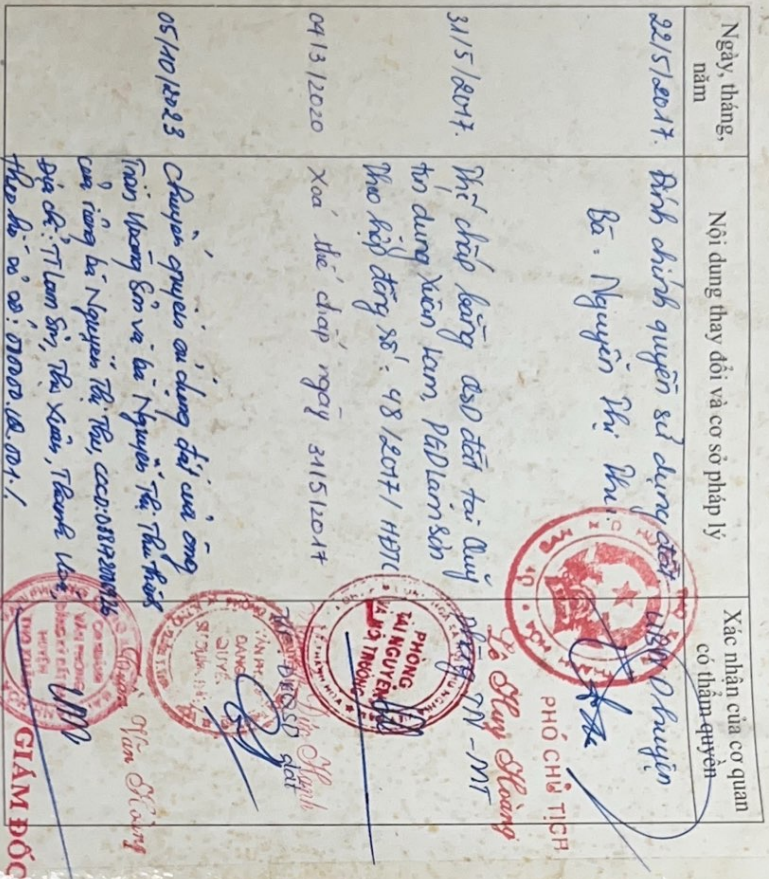 Ngày, tháng, năm
Nội dung thay đổi và cơ sở pháp lý
Xác nhận của cơ quan có thẩm quyền
22/5/2017.
Đính chính quyền sử dụng đất
Bà: Nguyễn Thị Thu
UBND huyện
PHÓ CHỦ TỊCH
Lê Huy Hoàng
31/5/2017.
Thế chấp bằng QSD đất tại Quỹ
tín dụng Xuân Lam, PGD Lam Sơn
Theo hợp đồng số: 48/2017/HĐTC
Phòng TN-MT
PHÒNG
TÀI NGUYÊN
VÀ MÔI TRƯỜNG
04/3/2020
Xoá thế chấp ngày 31/5/2017
ĐKQSD đất
05/10/2023
Chuyển quyền sử dụng đất của ông
Trần Vương Sơn và bà Nguyễn Thị Thu thành
của riêng bà Nguyễn Thị Thu, CCCD:
Địa chỉ: TT Lam Sơn, Thọ Xuân, Thanh Hoá,
Theo hồ sơ số:
CHI NHÁNH
VĂN PHÒNG
ĐĂNG KÝ ĐẤT ĐAI
HUYỆN
Văn Hoàng
GIÁM ĐỐC